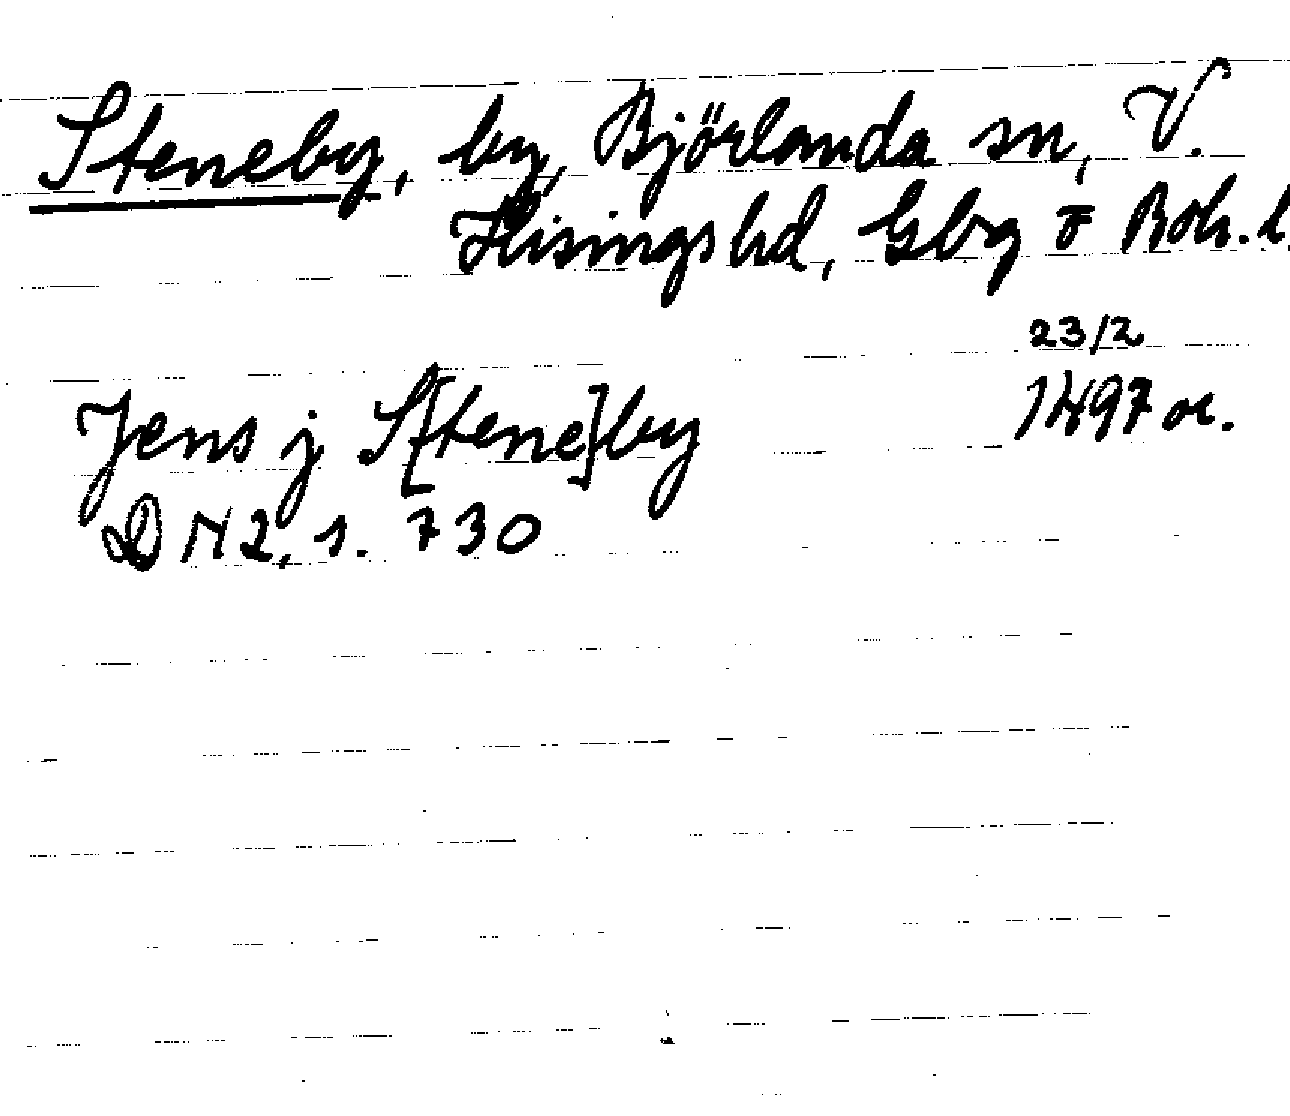 Steneby, by, Björlanda sn, V.
Hisings hd, Gbg o Boh. l.
23/2
Jens j S[tene]by 1497 or.
DN 2, s. 730